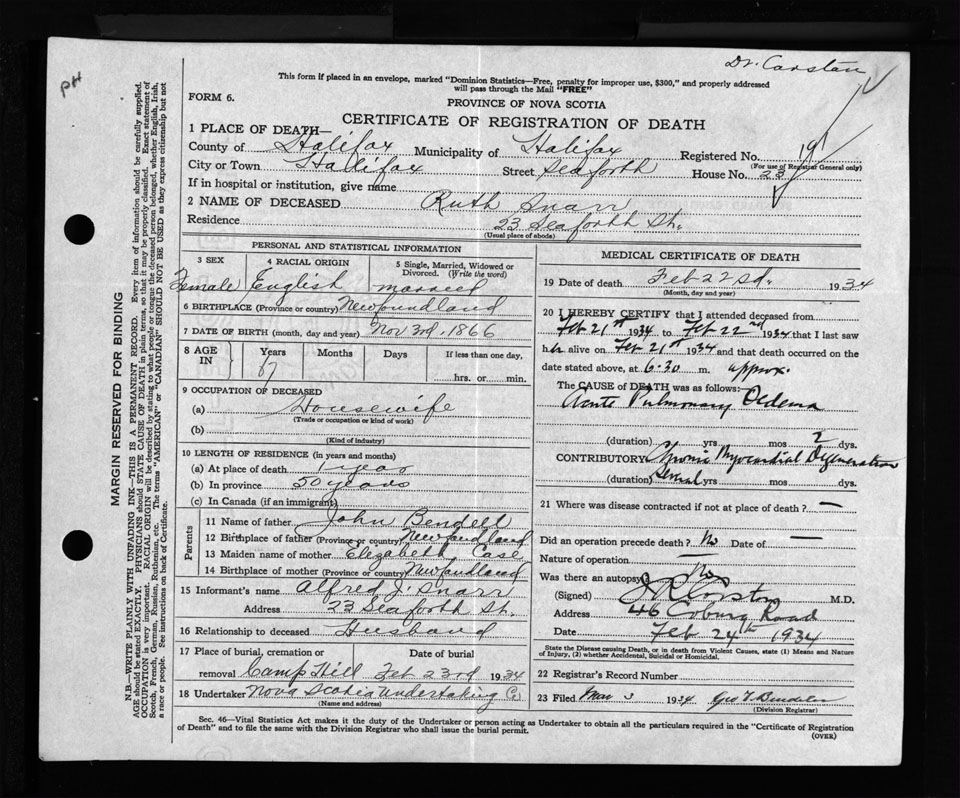 Dr. Carston
PH
This form if placed in an envelope, marked "Dominion Statistics—Free, penalty for improper use, $300," and properly addressed
will pass through the Mail "FREE"
FORM 6.
PROVINCE OF NOVA SCOTIA
CERTIFICATE OF REGISTRATION OF DEATH
1 PLACE OF DEATH—
County of Halifax Municipality of Halifax Registered No.
(For use of Registrar General only)
City or Town Halifax Street Seaforth House No. 23
If in hospital or institution, give name
2 NAME OF DECEASED Ruth Snarr
Residence 23 Seaforth St.
(Usual place of abode)
MARGIN RESERVED FOR BINDING
N.B.—WRITE PLAINLY WITH UNFADING INK—THIS IS A PERMANENT RECORD. Every item of information should be carefully supplied.
AGE should be stated EXACTLY. PHYSICIANS should STATE CAUSE OF DEATH in plain terms, so that it may be properly classified. Exact statement of
OCCUPATION is very important. RACIAL ORIGIN will be described by stating to what people or tongue the deceased person belonged, whether English, Irish,
Scotch, French, German, Russian, Ruthenian, etc. The terms "AMERICAN" or "CANADIAN" SHOULD NOT BE USED as they express citizenship but not
a race or people. See instructions on back of Certificate.
PERSONAL AND STATISTICAL INFORMATION
3 SEX 4 RACIAL ORIGIN 5 Single, Married, Widowed or
Divorced. (Write the word)
Female English married
6 BIRTHPLACE (Province or country) Newfoundland
7 DATE OF BIRTH (month, day and year) Nov 3rd, 1866
8 AGE IN Years Months Days If less than one day,
67 hrs. or min.
9 OCCUPATION OF DECEASED
(a) Housewife
(Trade or occupation or kind of work)
(b)
(Kind of industry)
10 LENGTH OF RESIDENCE (in years and months)
(a) At place of death 1 year
(b) In province 50 years
(c) In Canada (if an immigrant)
Parents
11 Name of father John Bendell
12 Birthplace of father (Province or country) Newfoundland
13 Maiden name of mother Elizabeth Case
14 Birthplace of mother (Province or country) Newfundland
15 Informant's name Alfred J. Snarr
Address 23 Seaforth St.
16 Relationship to deceased Husband
17 Place of burial, cremation or Date of burial
removal Camp Hill Feb 23rd 1934
18 Undertaker Nova Scotia Undertaking Co
(Name and address)
MEDICAL CERTIFICATE OF DEATH
19 Date of death Feb 22nd. 1934
(Month, day and year)
20 I HEREBY CERTIFY that I attended deceased from
Feb 21st 1934 to Feb 22nd 1934 that I last saw
her alive on Feb 21st 1934 and that death occurred on the
date stated above, at 6:30 m. approx.
The CAUSE OF DEATH was as follows:
Acute Pulmonary Oedema
(duration) yrs mos 2 dys.
CONTRIBUTORY Chronic Myocardial Degeneration
(duration) Several yrs mos dys.
21 Where was disease contracted if not at place of death? —
Did an operation precede death? No Date of —
Nature of operation —
Was there an autopsy No
(Signed) Corston M.D.
Address 46 Coburg Road
Date Feb 24th 1934
State the Disease causing Death, or in death from Violent Causes, state (1) Means and Nature
of Injury, (2) whether Accidental, Suicidal or Homicidal.
22 Registrar's Record Number
23 Filed Mar 3 1934
(Division Registrar)
Sec. 46—Vital Statistics Act makes it the duty of the Undertaker or person acting as Undertaker to obtain all the particulars required in the "Certificate of Registration
of Death" and to file the same with the Division Registrar who shall issue the burial permit.
(OVER)